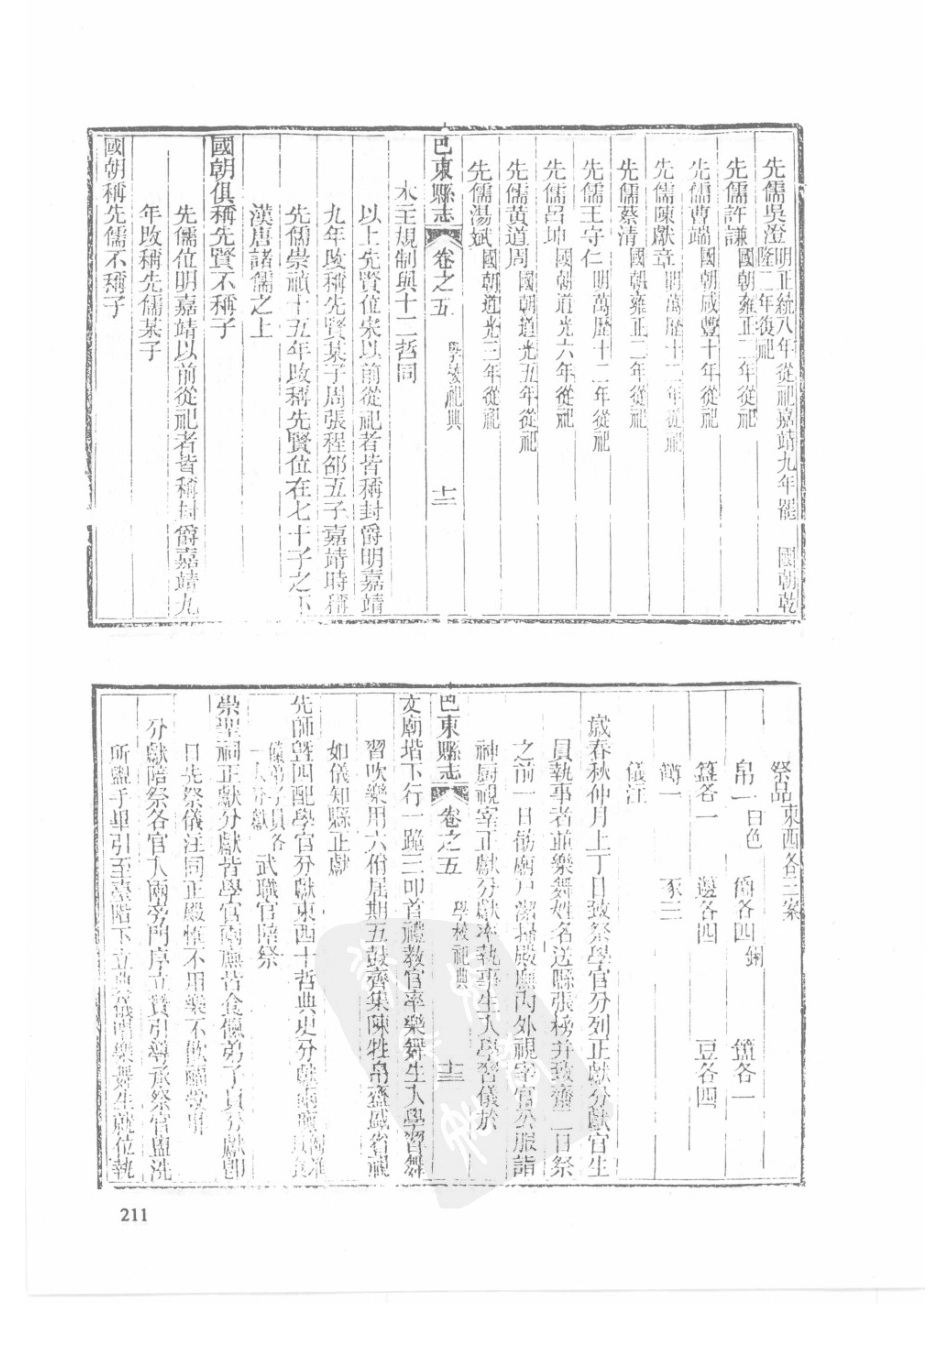 先儒吳澄明正統八年從祀嘉靖九年罷 國朝乾隆二年復祀
先儒許謙國朝雍正二年從祀
先儒曹端國朝咸豐十年從祀
先儒陳獻章明萬歷十二年從祀
先儒蔡清國朝雍正二年從祀
先儒王守仁明萬歷十二年從祀
先儒呂坤國朝道光六年從祀
先儒黃道周國朝道光五年從祀
先儒湯斌國朝道光三年從祀
巴東縣志 卷之五 學校祀典 十二
木主規制與十二哲同
以上先賢位宋以前從祀者皆稱封爵明嘉靖
九年改稱先賢某子周張程邵五子嘉靖時稱
先儒崇禎十五年改稱先賢位在七十子之下
漢唐諸儒之上
國朝俱稱先賢不稱子
先儒位明嘉靖以前從祀者皆稱封爵嘉靖九
年改稱先儒某子
國朝稱先儒不稱子
祭品東西各三案
帛一白色 簠各一
簋各一 籩各四 豆各四
豕三
儀注
歲春秋仲月上丁日致祭學官分列正獻分獻官生
員執事者並樂舞姓名送縣張榜并致齋二日祭
之前一日飭廟戶潔掃殿廡內外視宰官公服詣
神廚視宰正獻分獻率執事生入學習儀於
巴東縣志 卷之五 學校祀典 十三
文廟堦下行一跪三叩首禮教官率樂舞生入學習舞
習吹樂用六佾屆期五鼓齊集陳牲帛齍盛省視
如儀知縣正獻
先師暨四配學官分獻東西十哲典史分獻兩廡
儀弟子員各一人分獻 武職官陪祭
崇聖祠正獻分獻皆學官兩廡皆食餼弟子員分獻即
日先祭儀注同正殿惟不用樂不飲福受胙
分獻陪祭各官入兩旁門序立贊引導承祭官盥洗
所盥手畢引至臺階下立典儀唱樂舞生就位執
211